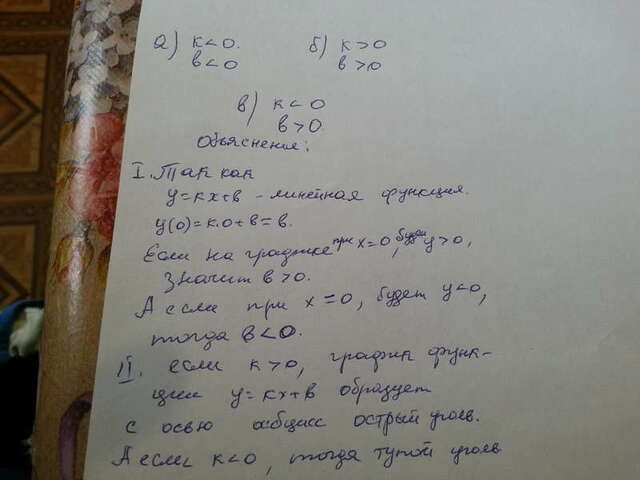 а) к<0. б) к>0
в<0 в>0
в) к<0
в>0.
Объяснение:
I. Так как
у=кх+в - линейная функция.
у(0)=к·0+в=в.
Если на графике при х=0, будет у>0,
значит в>0.
А если при х=0, будет у<0,
тогда в<0.
II. если к>0, график функ-
ции у=кх+в образует
с осью абцисс острый угол.
А если к<0, тогда тупой угол